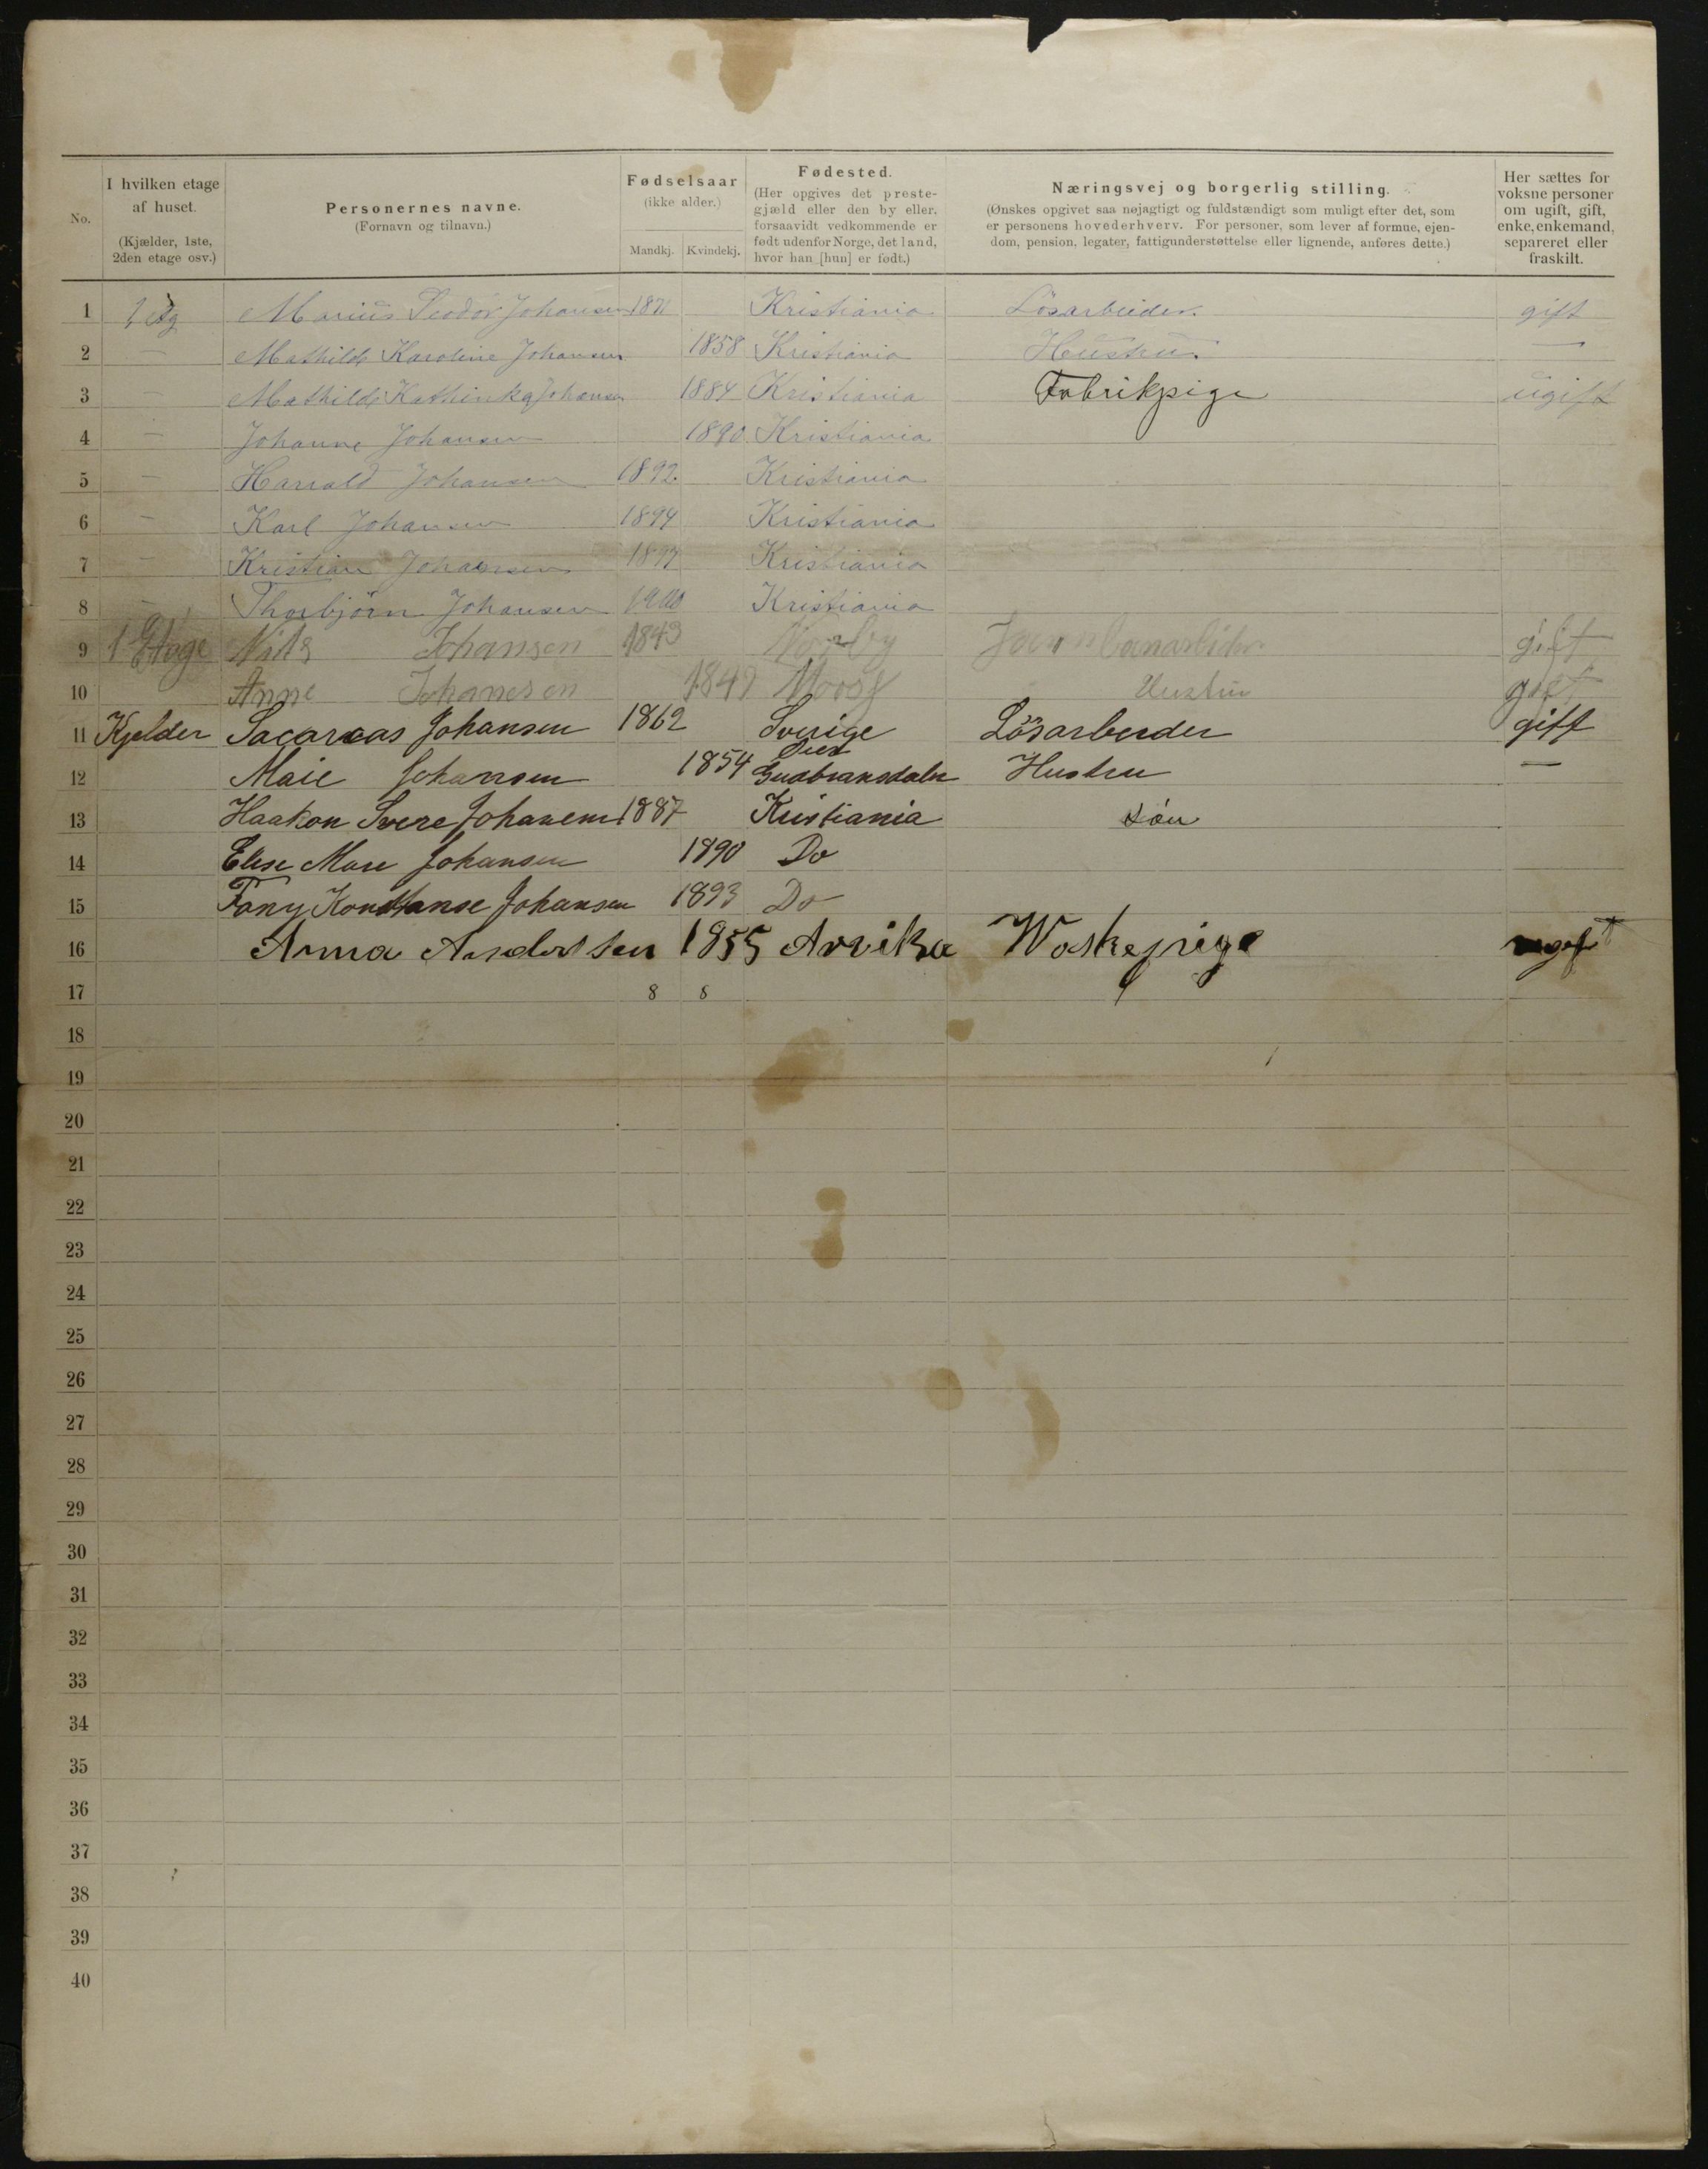 No.
I hvilken etage af huset. (Kjælder, 1ste, 2den etage osv.)
Personernes navne. (Fornavn og tilnavn.)
Fødselsaar (ikke alder.)
Mandkj. Kvindekj.
Fødested. (Her opgives det prestegjæld eller den by eller, forsaavidt vedkommende er født udenfor Norge, det land, hvor han [hun] er født.)
Næringsvej og borgerlig stilling. (Ønskes opgivet saa nøjagtigt og fuldstændigt som muligt efter det, som er personens hovederhverv. For personer, som lever af formue, ejendom, pension, legater, fattigunderstøttelse eller lignende, anføres dette.)
Her sættes for voksne personer om ugift, gift, enke, enkemand, separeret eller fraskilt.
1 1 Etg Marius Teodor Johansen 1871 Kristiania Lösarbeider. gift
2 — Mathilde Karoline Johansen 1858 Kristiania Hustru. —
3 — Mathilde Kathinka Johansen 1884 Kristiania Fabrikpige ugift
4 — Johanne Johansen 1890 Kristiania
5 — Harrald Johansen 1892. Kristiania
6 — Karl Johansen 1894 Kristiania
7 — Kristian Johansen 1897 Kristiania
8 — Thorbjörn Johansen 1900 Kristiania
9 1 Etage Nils Johansen 1843 gift
10 Anne Johansen 1849 Moss Hustru gift
11 Kjelder Sacareas Johansen 1862 Sverige Lösarbeider gift
12 Maie Johansen 1854 Gudbransdalen Hustru —
13 Haakon Svere Johansen 1887 Kristiania sön
14 Elise Marie Johansen 1890 Do
15 Fany Konstanse Johansen 1893 Do
16 Anna Andersen 1855 Arvika Waskepige ugift
17 8 8
18
19
20
21
22
23
24
25
26
27
28
29
30
31
32
33
34
35
36
37
38
39
40